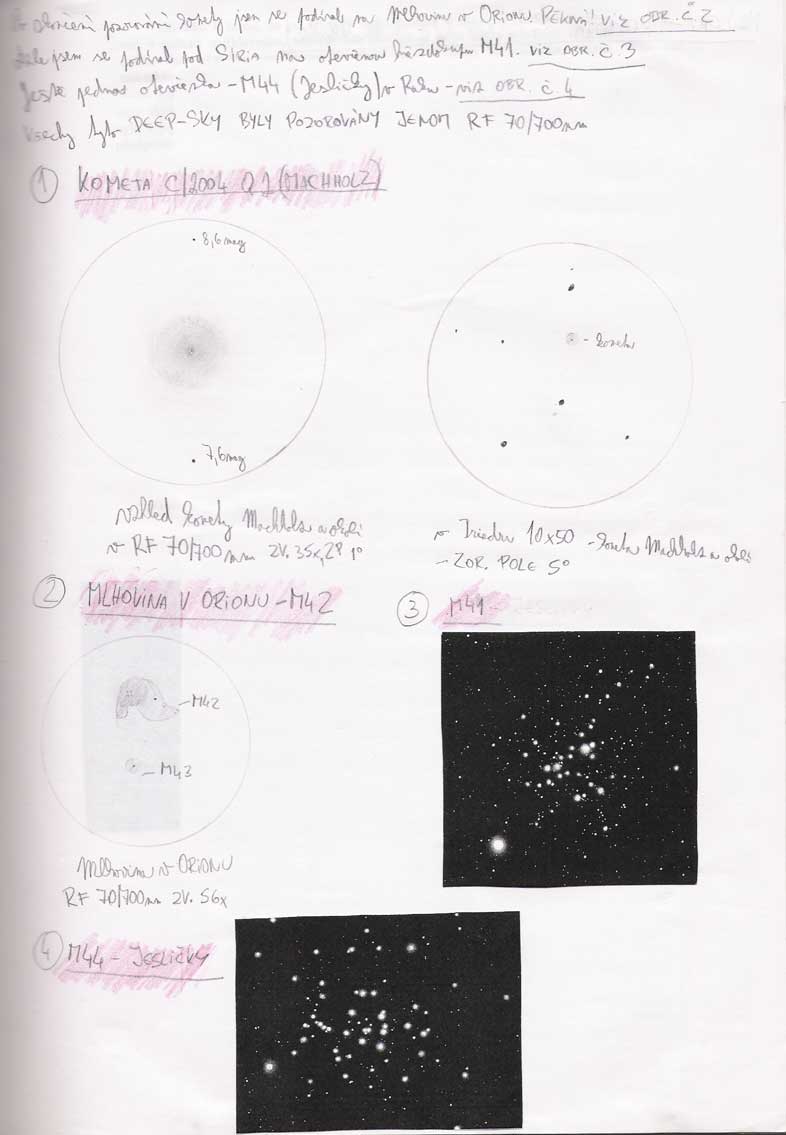 Po skončení pozorování komety jsem se podíval na Mlhovinu v Orionu. Pěkná! viz OBR. č. 2
Dále jsem se podíval pod SIRIA na otevřenou hvězdokupu M41. viz OBR. č. 3
Ještě jedna otevřená - M44 (Jesličky) v Raku - viz OBR. č. 4
Všechy tyto DEEP-SKY BYLY POZOROVÁNY JENOM RF 70/700mm
1 KOMETA C/2004 Q2 (MACHHOLZ)
8,6 mag
- kometa
7,6 mag
Vzhled komety Machholz a okolí
v RF 70/700mm ZV. 35x, 1°
v Triedru 10x50 - kometa Machholz a okolí
- ZOR. POLE 5°
2 MLHOVINA V ORIONU - M42
3 M41 -
- M42
- M43
Mlhovina v ORIONU
RF 70/700mm ZV. 56x
4 M44 - JESLIČKY